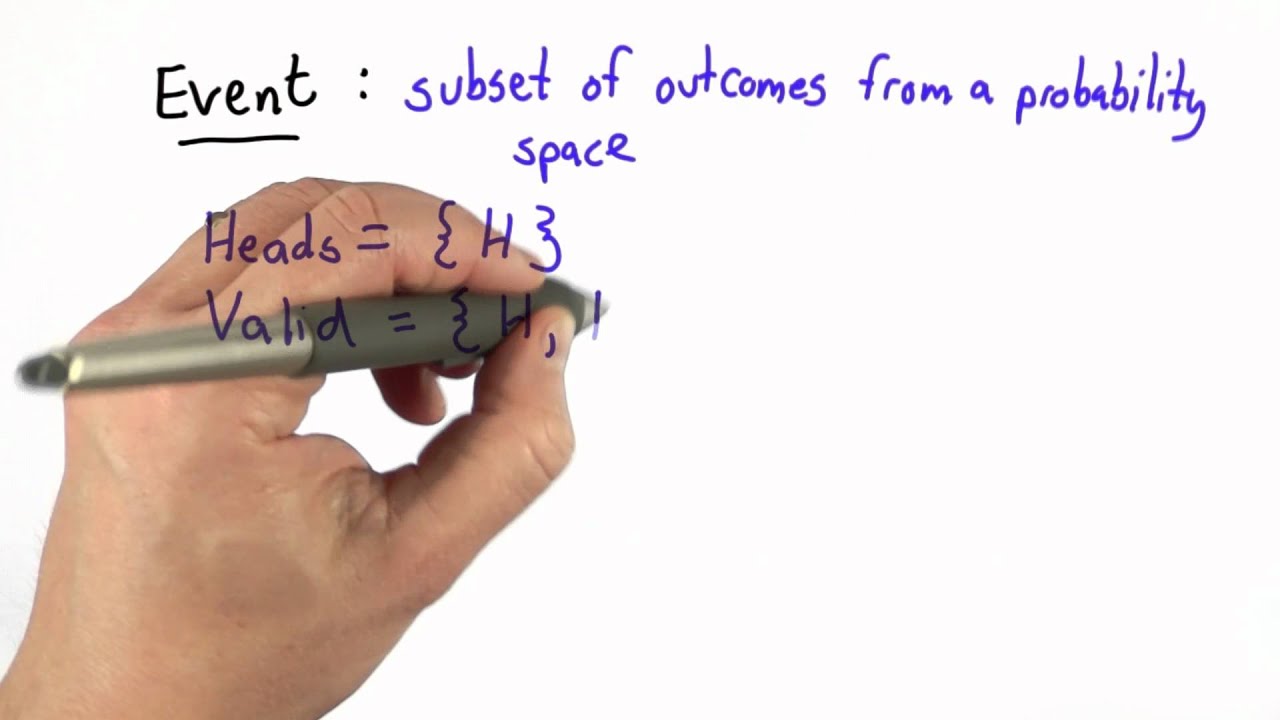 Event : subset of outcomes from a probability
space
Heads = { H }
Valid = { H,